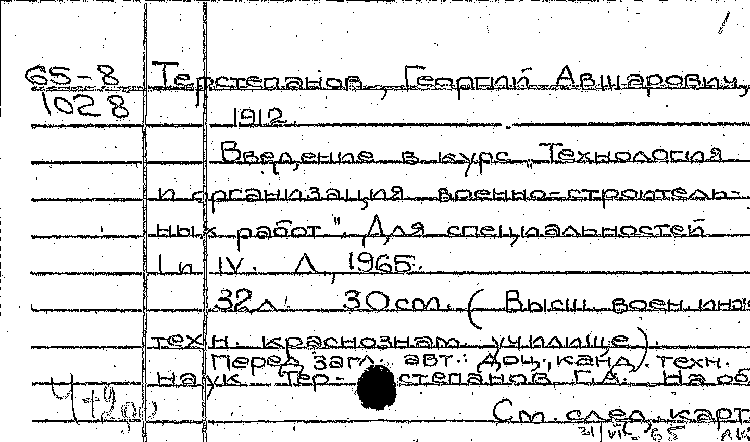 65-8
1028
Терстепанов, Георгий Авшарович,
1912.
Введение в курс "Технология
и организация военно-строитель-
ных работ". Для специальностей
I и IV. Л., 1965.
32 л. 30 см. (Высш. воен. инж
техн. краснознам. училище).
Перед загл. авт.: Доц., канд. техн.
наук Тер-степанов Г.А. На об
См. след. карт